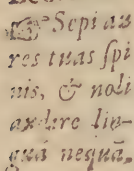 ☞ Sepi au
res tuas ſpi
nis, & noli
audire lin-
guā nequā,